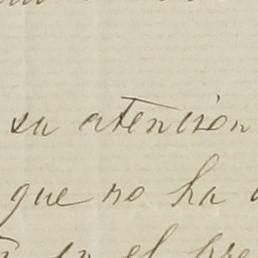 su atencion
que no ha
en el